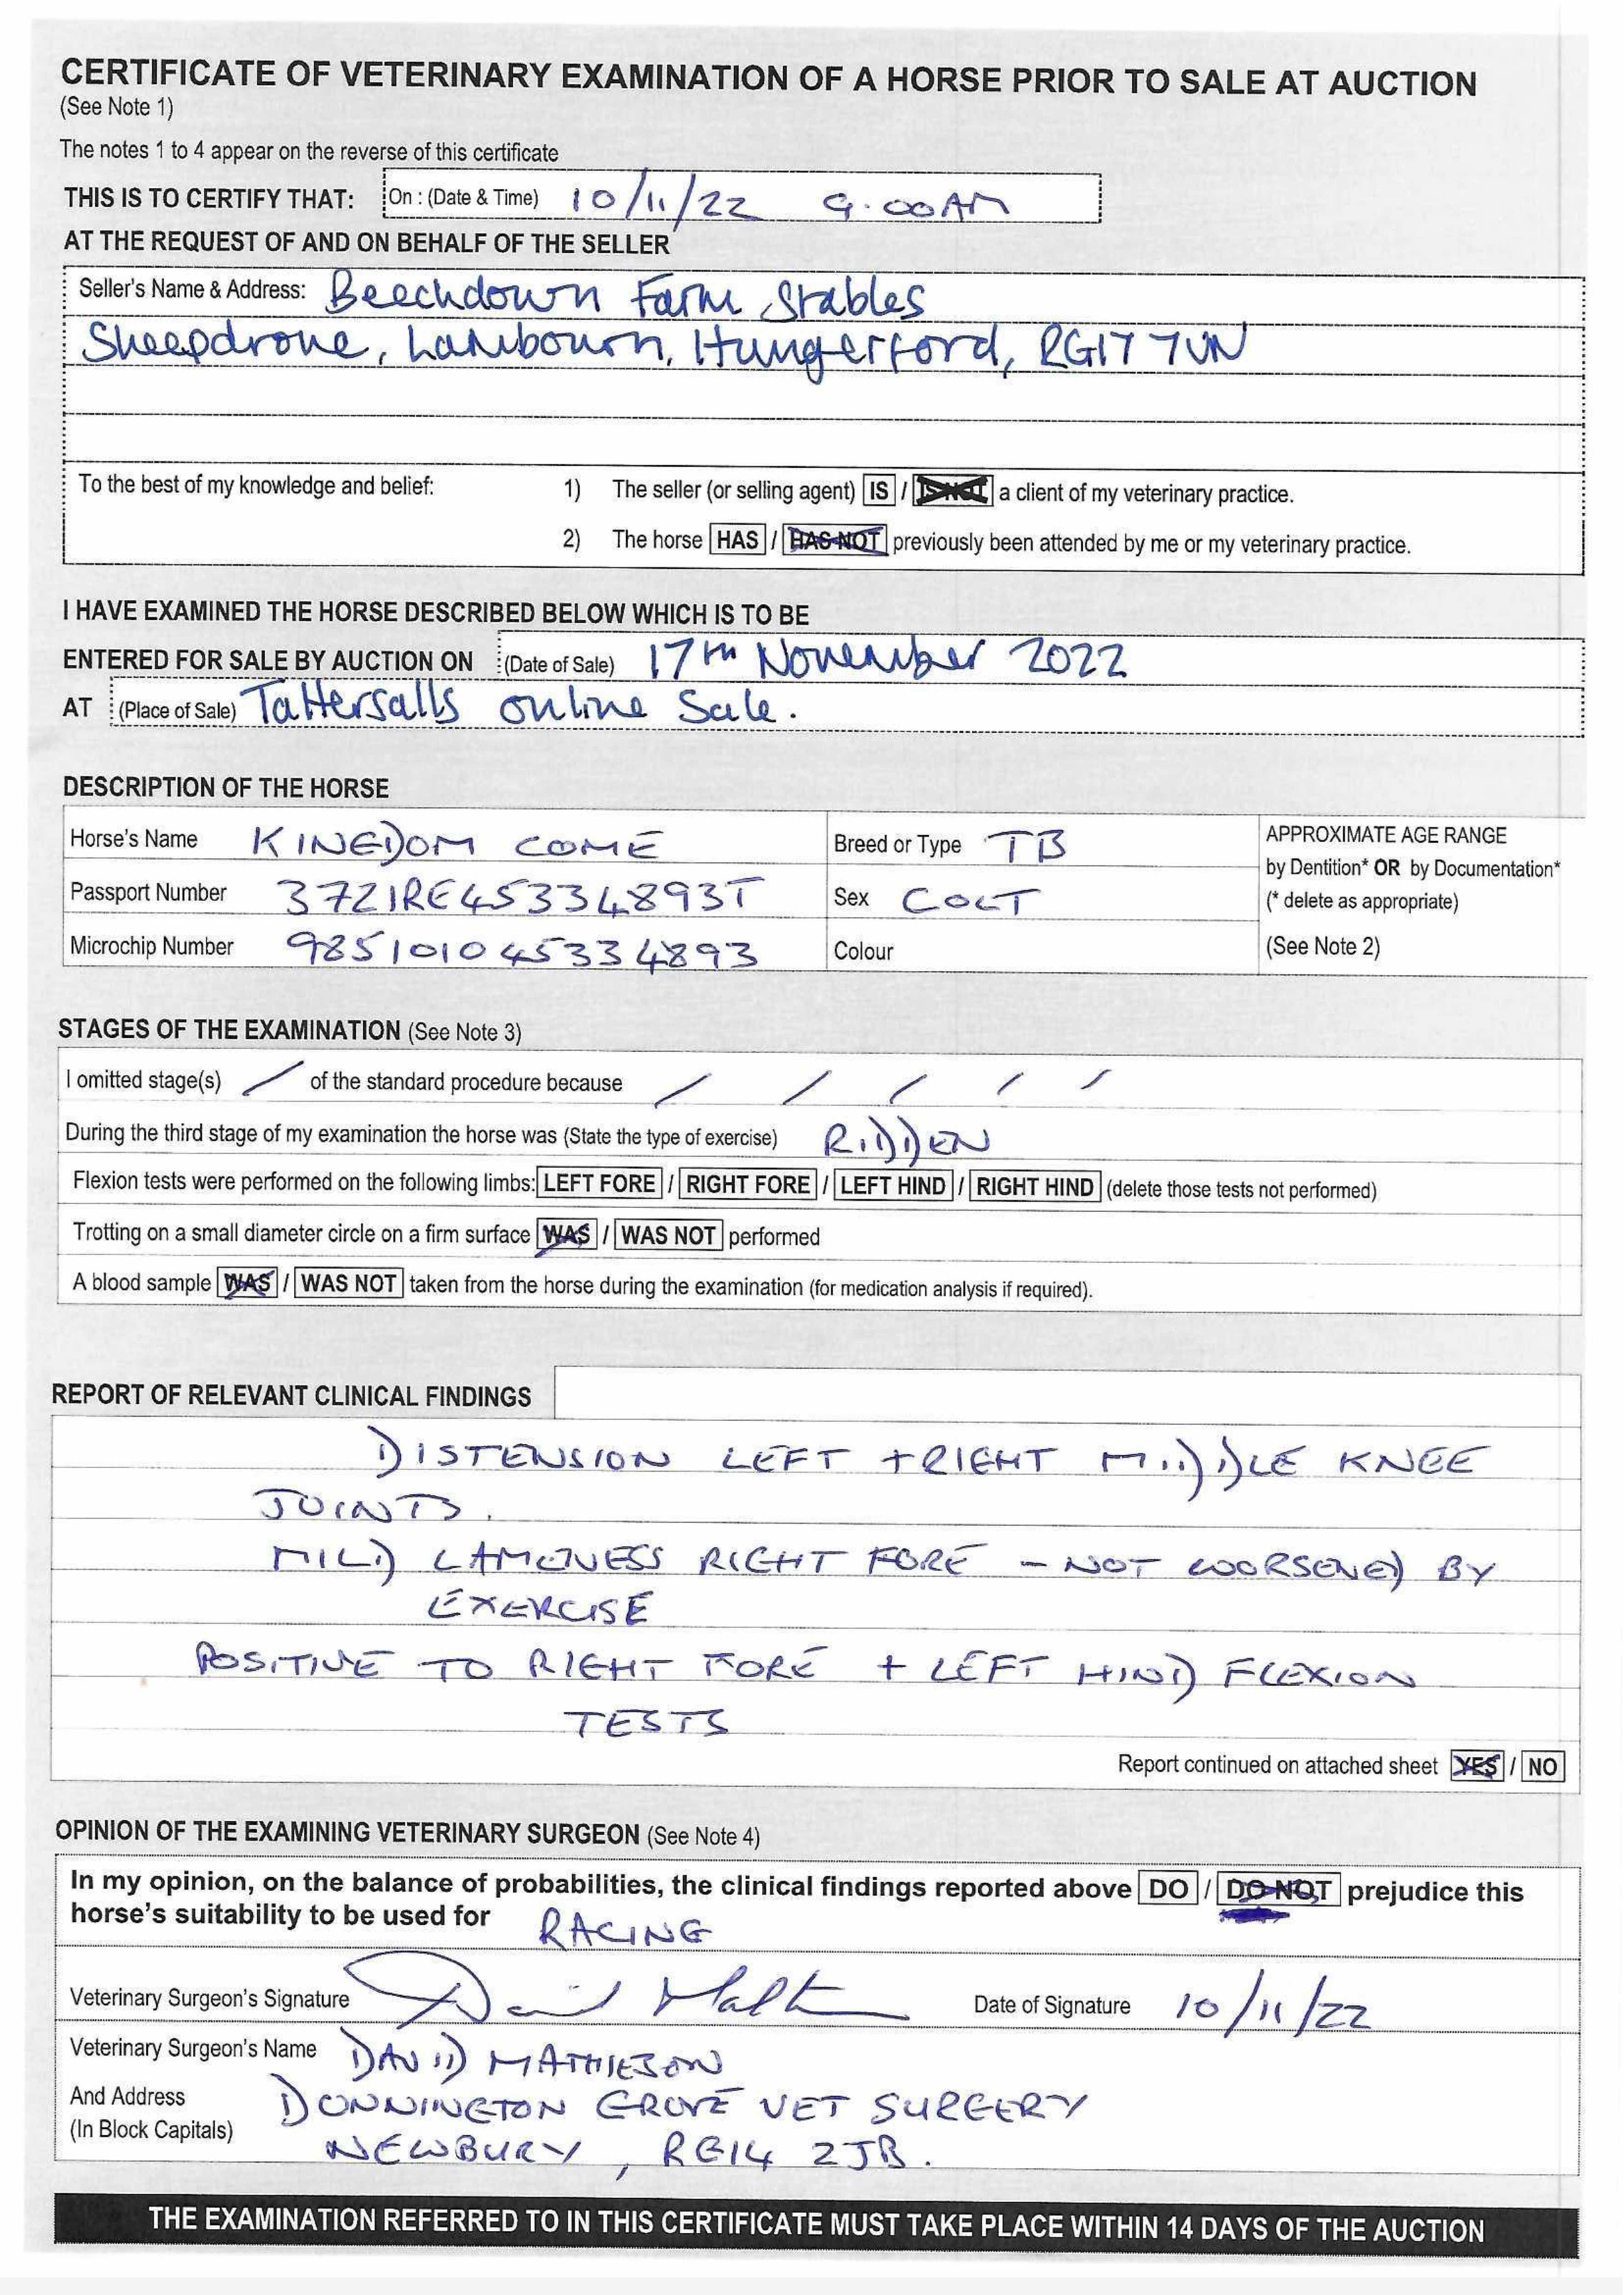 CERTIFICATE OF VETERINARY EXAMINATION OF A HORSE PRIOR TO SALE AT AUCTION
(See Note 1)
The notes 1 to 4 appear on the reverse of this certificate
THIS IS TO CERTIFY THAT: On : (Date & Time) 10/11/22 9.00AM
AT THE REQUEST OF AND ON BEHALF OF THE SELLER
Seller's Name & Address: Beechdown Farm Stables
Sheepdrove, Lambourn, Hungerford, RG17 7UN
To the best of my knowledge and belief: 1) The seller (or selling agent) IS / IS NOT a client of my veterinary practice.
2) The horse HAS / HAS NOT previously been attended by me or my veterinary practice.
I HAVE EXAMINED THE HORSE DESCRIBED BELOW WHICH IS TO BE
ENTERED FOR SALE BY AUCTION ON (Date of Sale) 17th November 2022
AT (Place of Sale) Tattersalls online Sale.
DESCRIPTION OF THE HORSE
Horse's Name KINGDOM COME Breed or Type TB APPROXIMATE AGE RANGE
by Dentition* OR by Documentation*
Passport Number 372IRE45334893T Sex COLT (* delete as appropriate)
Microchip Number 985101045334893 Colour (See Note 2)
STAGES OF THE EXAMINATION (See Note 3)
I omitted stage(s) / of the standard procedure because / / / / /
During the third stage of my examination the horse was (State the type of exercise) RIDDEN
Flexion tests were performed on the following limbs: LEFT FORE / RIGHT FORE / LEFT HIND / RIGHT HIND (delete those tests not performed)
Trotting on a small diameter circle on a firm surface WAS / WAS NOT performed
A blood sample WAS / WAS NOT taken from the horse during the examination (for medication analysis if required).
REPORT OF RELEVANT CLINICAL FINDINGS
DISTENSION LEFT + RIGHT MIDDLE KNEE
JOINTS.
MILD LAMENESS RIGHT FORE - NOT WORSENED BY
EXERCISE
POSITIVE TO RIGHT FORE + LEFT HIND FLEXION
TESTS
Report continued on attached sheet YES / NO
OPINION OF THE EXAMINING VETERINARY SURGEON (See Note 4)
In my opinion, on the balance of probabilities, the clinical findings reported above DO / DO NOT prejudice this
horse's suitability to be used for RACING
Veterinary Surgeon's Signature David Math Date of Signature 10/11/22
Veterinary Surgeon's Name DAVID MATHIESON
And Address DONNINGTON GROVE VET SURGERY
(In Block Capitals) NEWBURY, RG14 2JB.
THE EXAMINATION REFERRED TO IN THIS CERTIFICATE MUST TAKE PLACE WITHIN 14 DAYS OF THE AUCTION